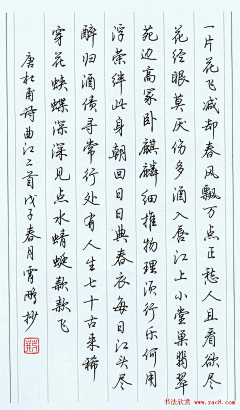 一片花飞减却春风飘万点正愁人且看欲尽
花经眼莫厌伤多酒入唇江上小堂巢翡翠
苑边高冢卧麒麟细推物理须行乐何用
浮荣绊此身朝回日日典春衣每日江头尽
醉归酒债寻常行处有人生七十古来稀
穿花蛱蝶深深见点水蜻蜓款款飞
唐杜甫诗曲江二首戊子春月霄鹏抄
书法欣赏
www.yac8.com